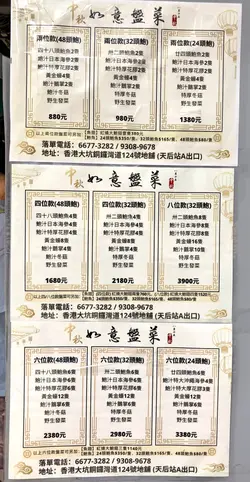 中秋 如意盤菜
兩位款(48頭鮑)
四十八頭鮑魚2隻
鮑汁日本海參2隻
鮑汁特厚花膠2隻
黃金蠔4隻
鮑汁鵝掌2隻
鮑汁冬菇
野生發菜
880元
兩位款(32頭鮑)
卅二頭鮑魚2隻
鮑汁日本海參2隻
鮑汁特厚花膠2隻
黃金蠔4隻
鮑汁鵝掌2隻
特厚冬菇
野生發菜
980元
兩位款(24頭鮑)
廿四頭鮑魚2隻
黃金蠔4隻
鮑汁鵝掌2隻
特厚冬菇
野生發菜
1380元
落單電話: 6677-3282 / 9308-9678
地址: 香港大坑銅鑼灣道124號地鋪 (天后站A出口)
中秋 如意盤菜
四位款(48頭鮑)
四十八頭鮑魚4隻
鮑汁日本海參4隻
鮑汁特厚花膠4隻
黃金蠔8隻
鮑汁鵝掌4隻
鮑汁冬菇
野生發菜
1680元
四位款(32頭鮑)
卅二頭鮑魚4隻
鮑汁日本海參4隻
鮑汁特厚花膠4隻
黃金蠔8隻
鮑汁鵝掌4隻
特厚冬菇
野生發菜
2180元
四位款(24頭鮑)
廿四頭鮑魚4隻
黃金蠔8隻
鮑汁鵝掌4隻
特厚冬菇
野生發菜
落單電話: 6677-3282 / 9308-9678
地址: 香港大坑銅鑼灣道124號地鋪 (天后站A出口)
中秋 如意盤菜
六位款(48頭鮑)
四十八頭鮑魚6隻
鮑汁日本海參6隻
鮑汁特厚花膠6隻
黃金蠔12隻
鮑汁鵝掌6隻
鮑汁冬菇
野生發菜
2380元
六位款(32頭鮑)
卅二頭鮑魚6隻
鮑汁日本海參6隻
鮑汁特厚花膠6隻
黃金蠔12隻
鮑汁鵝掌6隻
特厚冬菇
野生發菜
2980元
六位款(24頭鮑)
廿四頭鮑魚6隻
黃金蠔12隻
鮑汁鵝掌6隻
特厚冬菇
野生發菜
3380元
落單電話: 6677-3282 / 9308-9678
地址: 香港大坑銅鑼灣道124號地鋪 (天后站A出口)